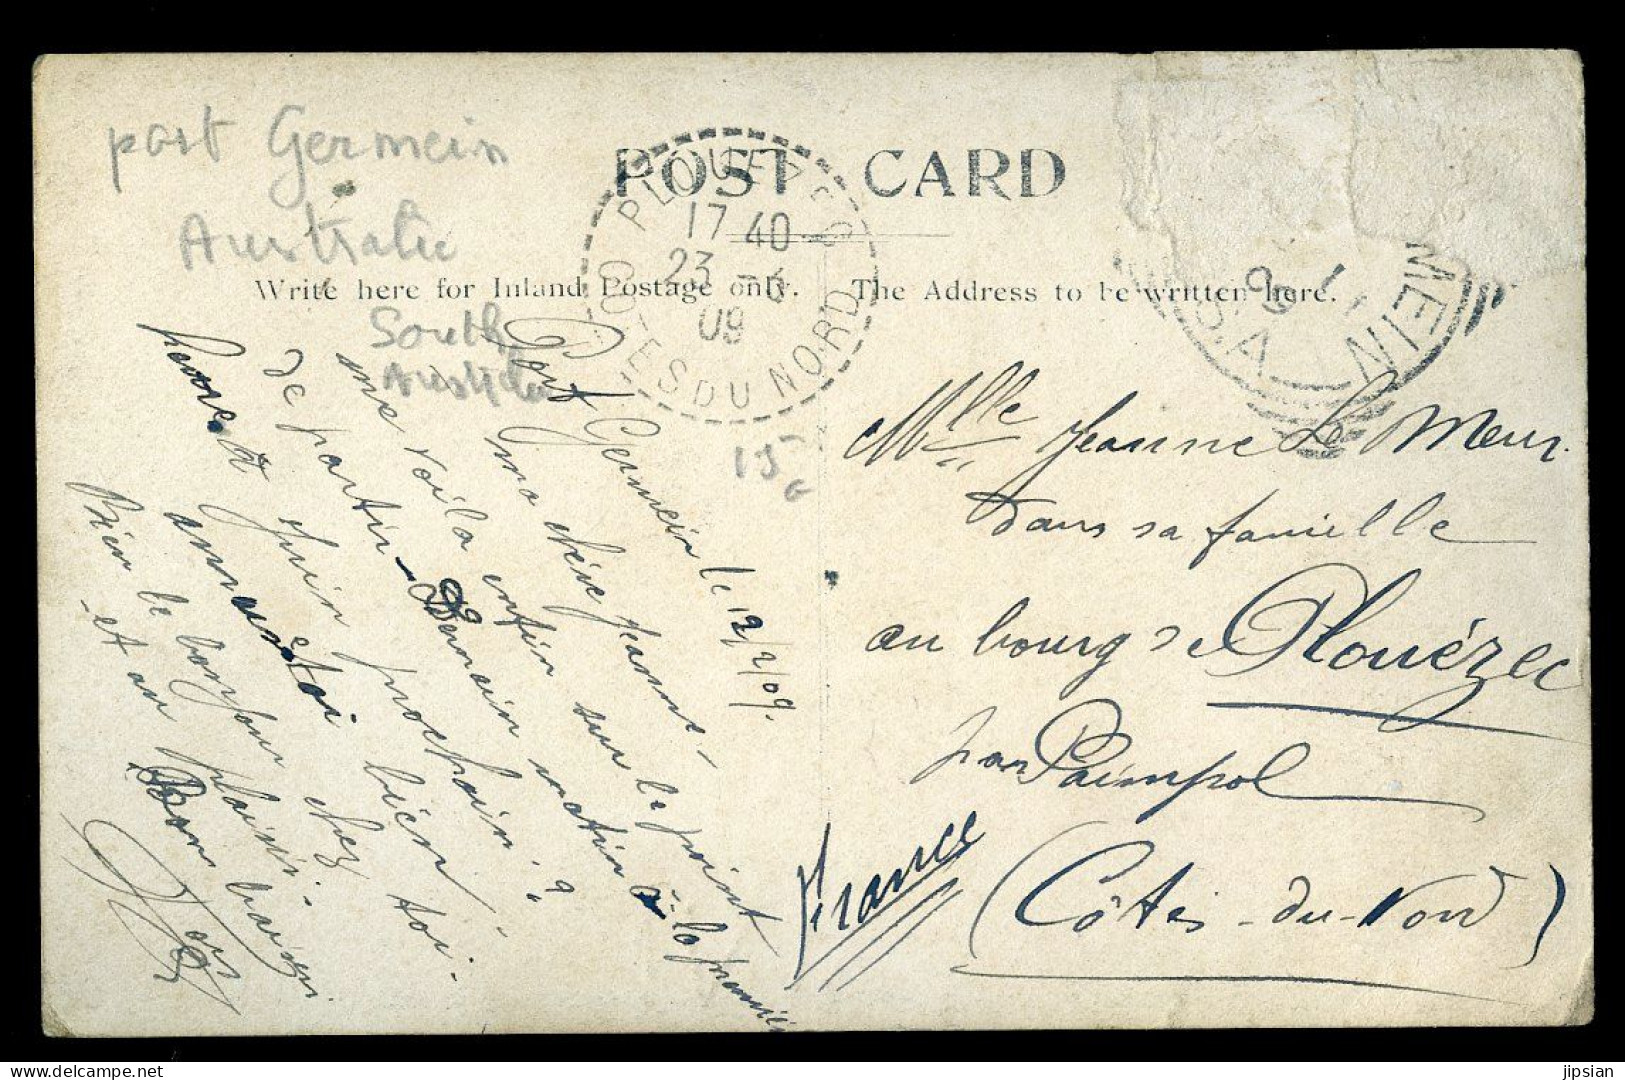 port Germein
Australie
South
Australie
POST CARD
PLOUEZEC
17 40
23 -3
09
COTES DU NORD
Write here for Inland Postage only.
The Address to be written here.
MEIN
S.A
09
15
Port Germein le 12/2/09.
ma chère Jeanne,
me voilà enfin sur le point
de partir - Demain matin à la première
heure. à Juin prochain.
amuse toi bien
Bien le bonjour chez toi.
- et au plaisir.
Bons baisers
Mlle Jeanne Le Meur.
dans sa famille
au bourg de Plouézec
par Paimpol
(Côtes-du-Nord)
France
jipsian